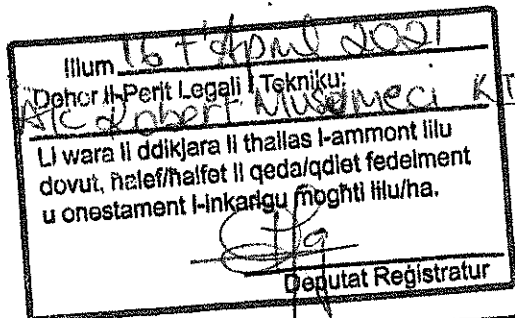 Illum 16 t'April 2021
Deher il-Perit Legali / Tekniku:
AIC Robert Musumeci K.T
Li wara li ddikjara li tħallas l-ammont lilu
dovut, ħalef/ħalfet li qeda/qdiet fedelment
u onestament l-inkarigu mogħti lilu/ha.
Deputat Reġistratur